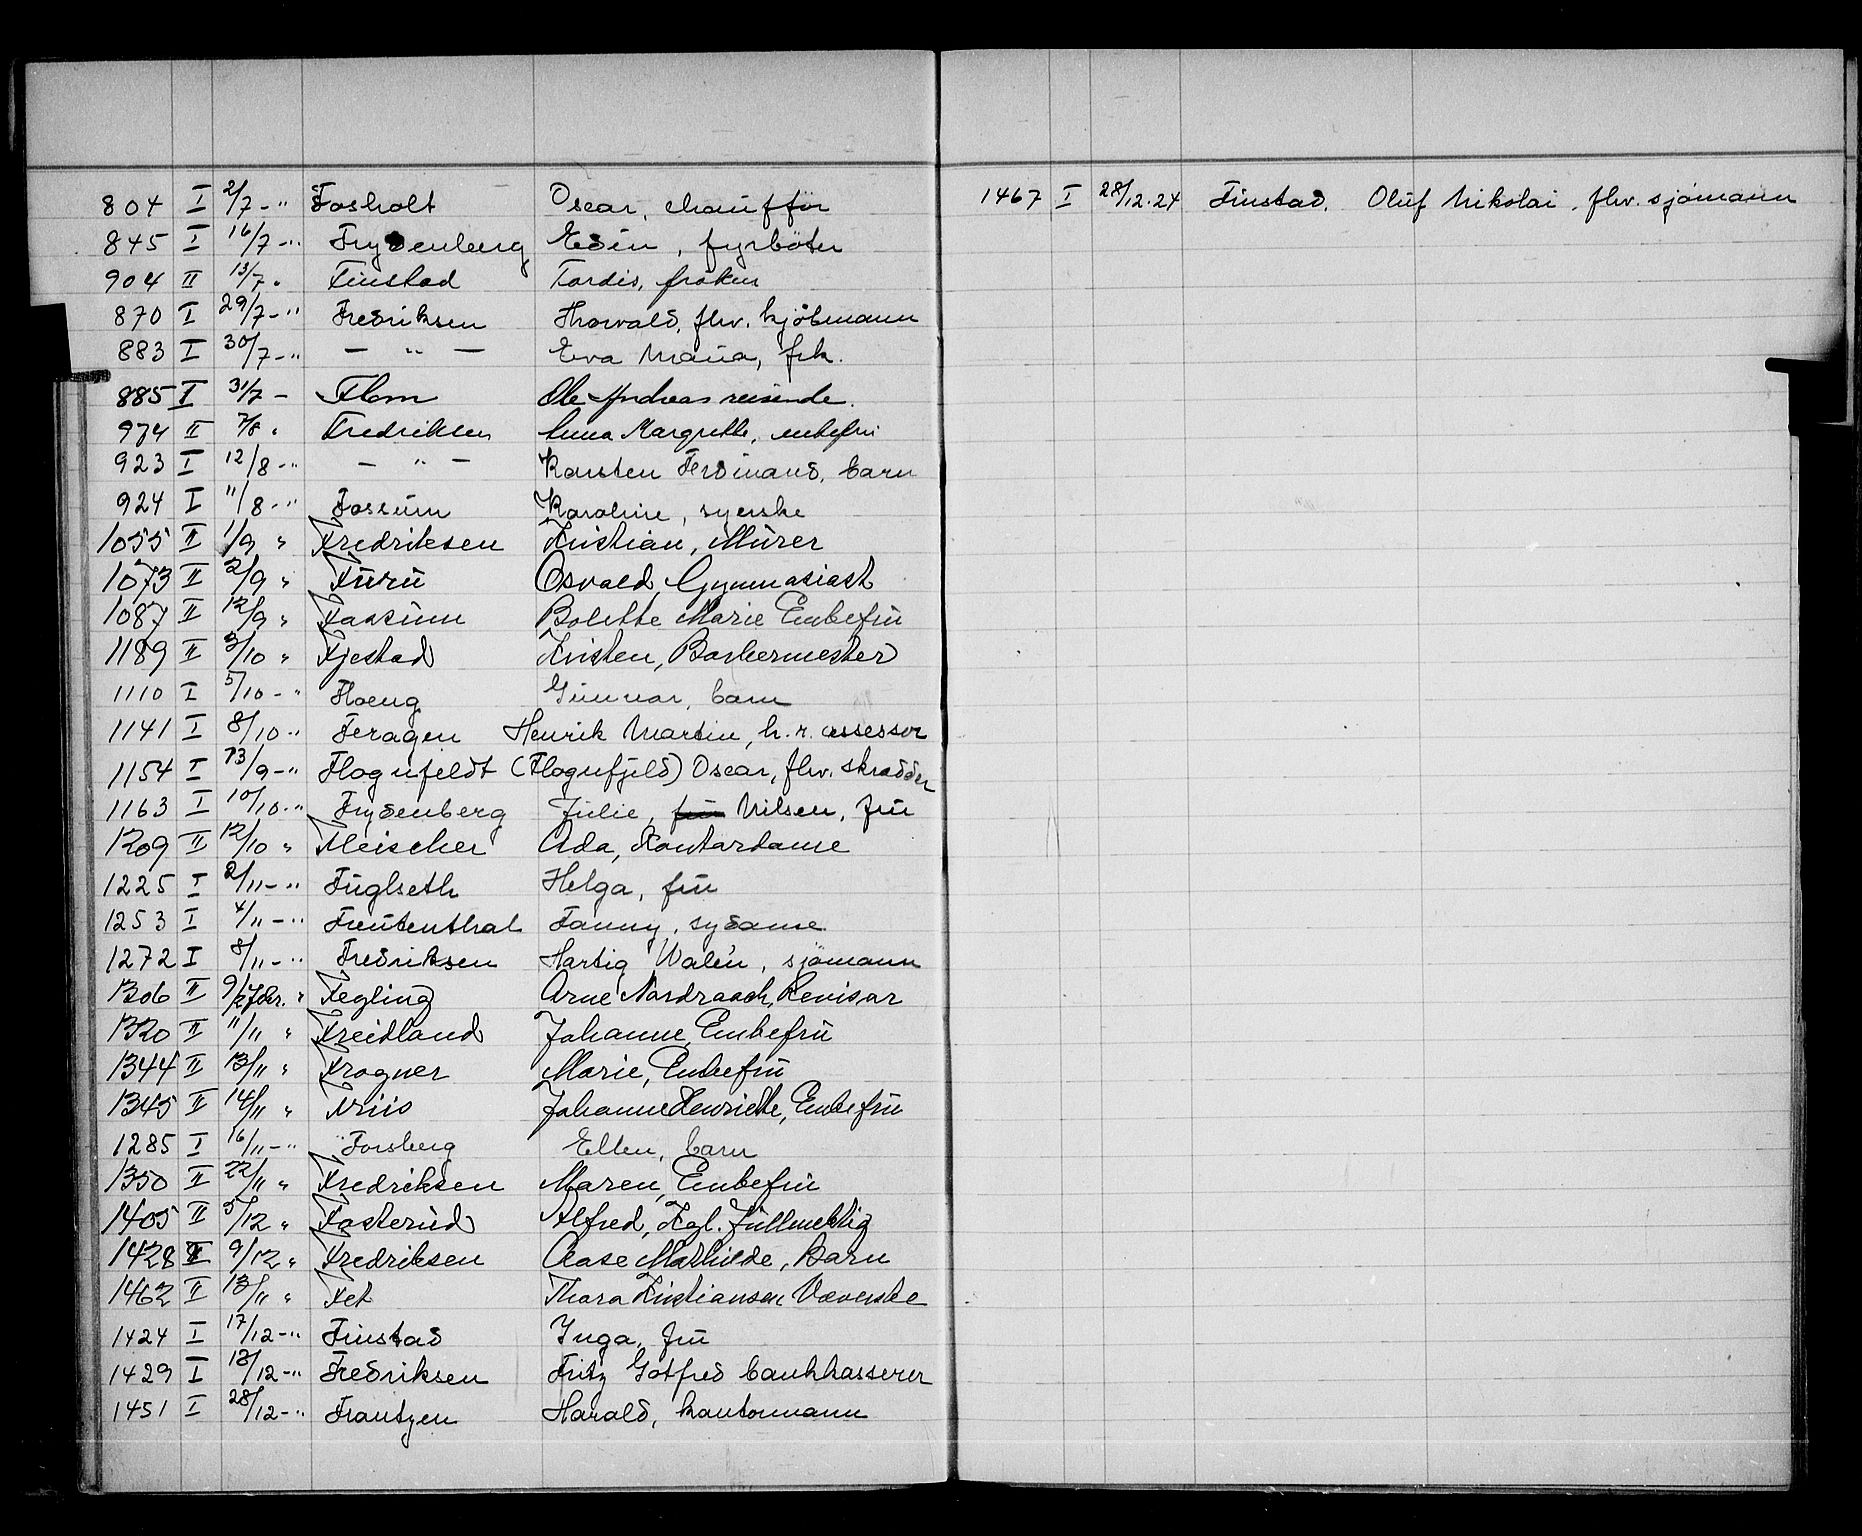 804 I 2/7 -" Fosholt Oscar, chaufför
845 I 16/7 -" Frydenberg Edin, fyrböter
904 II 13/7 " Finstad Tordis, frøken
870 I 29/7 -" Fredriksen Thorvald, fhv. kjøbmann
883 I 30/7 -" — " — Eva Maria, frk.
885 I 31/7 - Flom Ole Andreas reisende.
974 II 7/8 " Fredriksen Anna Margrethe, enkefru
923 I 12/8 -" — " — Karsten Ferdinand, barn
924 I 11/8 -" Fossum Karoline, syerske
1055 II 1/9 " Fredriksen Kristian, Murer
1073 II 2/9 " Furu Osvald, Gymnasiast
1087 II 12/9 " Fossum Bolette Marie Enkefru
1189 II 3/10 " Fjestad Kristen, Barbermester
1110 I 5/10 -" Floeng Gunnar, barn
1141 I 8/10 -" Feragen Henrik Martin, h. r. assessor
1154 I 13/9 -" Flognfeldt (Flognfjeld) Oscar, fhv. skrædder
1163 I 10/10 -" Frydenberg Julie, fru Nilsen, fru
1209 II 12/10 " Fleischer Ada, Kontordame
1225 I 2/11 -" Fuglseth Helga, fru
1253 I 4/11 -" Freutenthal Fanny, sydame
1272 I 8/11 -" Fredriksen Hartig Walén, sjömann
1306 II 9/11 " Fegling Arne Nordraach, Revisor
1320 II 11/11 " Freidland Johanne, Enkefru
1344 II 13/11 " Frogner Marie, Enkefru
1345 II 14/11 " Friis Johanne Henriette, Enkefru
1285 I 16/11 -" Forsberg Ellen, barn
1350 II 22/11 " Fredriksen Maren, Enkefru
1405 II 5/12 " Fosterud Alfred, Kgl. Fullmektig
1428 II 9/12 " Fredriksen Aase Mathilde, Barn
1462 II 13/11 " Fet Thora Kristiansen Væverske
1424 I 17/12 -" Finstad Inga, fru
1429 I 18/12 -" Fredriksen Fritz Gotfred bankkasserer
1451 I 28/12 -" Frantzen Harald, kontormann
1467 I 28/12.24 Finstad, Oluf Nikolai, fhv. sjömann